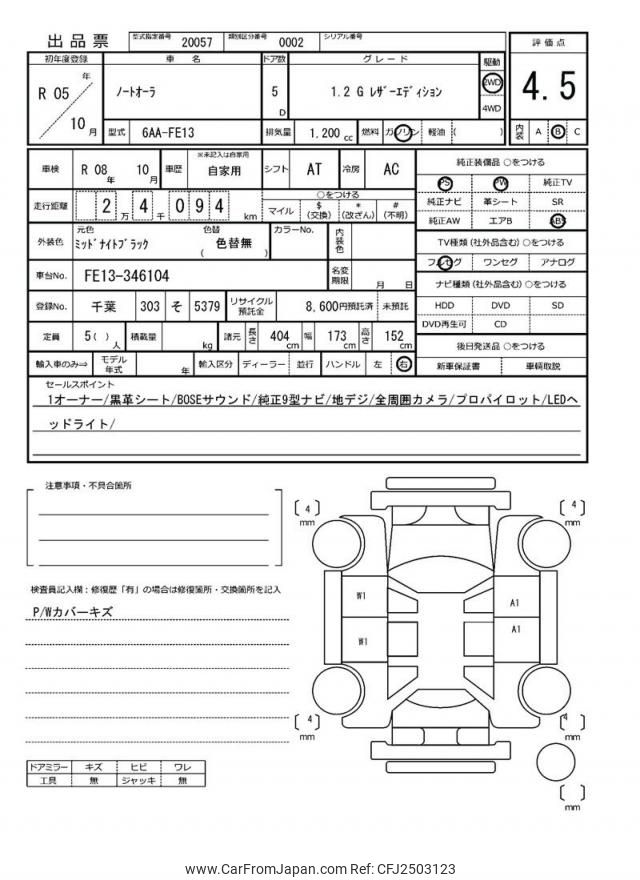 出品票 型式指定番号 20057 類別区分番号 0002 シリアル番号
評価点
初年度登録 車名 ドア数 グレード 駆動
R 05 年 10 月 ノートオーラ 5 D 1.2 G レザーエディション 2WD 4WD
4.5
型式 6AA-FE13 排気量 1.200 cc 燃料 ガソリン 軽油 ( )
内装 A B C
車検 R 08 年 10 月 車歴 ※未記入は自家用 自家用 シフト AT 冷房 AC
純正装備品 ○をつける
PS PW 純正TV
純正ナビ 革シート SR
純正AW エアB ABS
走行距離 2 万 4 千 0 9 4 km
○をつける
マイル $ (交換) * (改ざん) # (不明)
TV種類 (社外品含む) ○をつける
フルセグ ワンセグ アナログ
外装色 元色 ミッドナイトブラック 色替 ( 色替無 ) カラーNo. 内装色
車台No. FE13-346104 名変期限 月 日
ナビ種類 (社外品含む) ○をつける
HDD DVD SD
DVD再生可 CD
登録No. 千葉 303 そ 5379 リサイクル預託金 8,600円預託済 未預託
定員 5( ) 人 積載量 kg 諸元 長さ 404 cm 幅 173 cm 高さ 152 cm
後日発送品 ○をつける
新車保証書 車輌取説
輸入車のみ⇒ モデル年式 年 輸入区分 ディーラー 並行 ハンドル 左 右
セールスポイント
1オーナー/黒革シート/BOSEサウンド/純正9型ナビ/地デジ/全周囲カメラ/プロパイロット/LEDヘ
ッドライト/
注意事項・不具合箇所
検査員記入欄：修復歴「有」の場合は修復箇所・交換箇所を記入
P/Wカバーキズ
ドアミラー キズ ヒビ ワレ
工具 無 ジャッキ 無
[ 4 ] mm
[ 4 ] mm
W1
A1
W1
A1
[ 4 ] mm
[ 4 ] mm
[ ] mm
www.CarFromJapan.com Ref: CFJ2503123